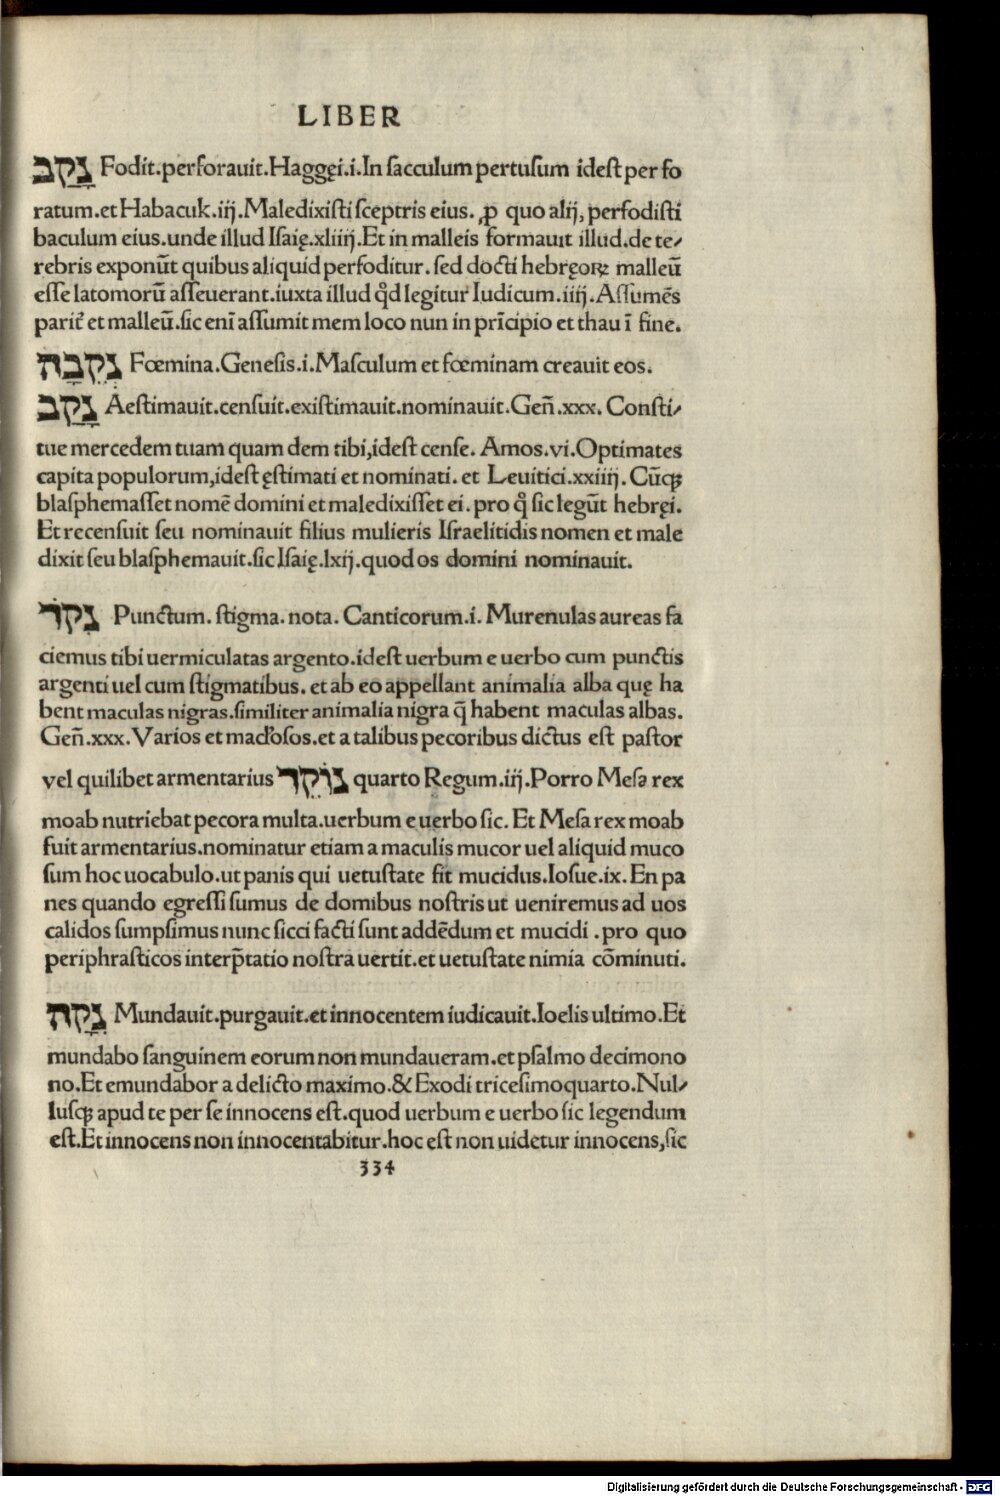 LIBER
נָקַב Fodit.perforauit.Haggęi.i.In sacculum pertusum idest perfo
ratum.et Habacuk.iij.Maledixisti sceptris eius.ꝓ quo alij, perfodisti
baculum eius.unde illud Isaię.xliiij.Et in malleis formauit illud.de te⸗
rebris exponūt quibus aliquid perfoditur.sed docti hebręoꝝ malleū
esse latomorū asseuerant.iuxta illud qd̓ legitur Iudicum.iiij.Assumēs
parit̓ et malleū.sic enī assumit mem loco nun in prīcipio et thau ī fine.
נְקֵבָה Fœmina.Genesis.i.Masculum et fœminam creauit eos.
נָקַב Aestimauit.censuit.existimauit.nominauit.Geñ.xxx. Consti⸗
tue mercedem tuam quam dem tibi,idest cense. Amos.vi.Optimates
capita populorum,idest ęstimati et nominati. et Leuitici.xxiiij. Cūqꝫ
blasphemasset nomē domini et maledixisset ei. pro q̊ sic legūt hebręi.
Et recensuit seu nominauit filius mulieris Israelitidis nomen et male
dixit seu blasphemauit.sic Isaię.lxij.quod os domini nominauit.
נָקֹד Punctum. stigma. nota. Canticorum.i. Murenulas aureas fa
ciemus tibi uermiculatas argento.idest uerbum e uerbo cum punctis
argenti uel cum stigmatibus. et ab eo appellant animalia alba quę ha
bent maculas nigras.similiter animalia nigra q̄ habent maculas albas.
Geñ.xxx.Varios et macl̓osos.et a talibus pecoribus dictus est pastor
vel quilibet armentarius נוֹקֵד quarto Regum.iij.Porro Mesa rex
moab nutriebat pecora multa.uerbum e uerbo sic. Et Mesa rex moab
fuit armentarius.nominatur etiam a maculis mucor uel aliquid muco
sum hoc uocabulo.ut panis qui uetustate fit mucidus.Iosue.ix.En pa
nes quando egressi sumus de domibus nostris ut ueniremus ad uos
calidos sumpsimus nunc sicci facti sunt addēdum et mucidi .pro quo
periphrasticos interp̄tatio nostra uertit.et uetustate nimia cōminuti.
נָקָה Mundauit.purgauit.et innocentem iudicauit.Ioelis ultimo.Et
mundabo sanguinem eorum non mundaueram.et psalmo decimono
no.Et emundabor a delicto maximo.& Exodi tricesimoquarto.Nul⸗
lusqꝫ apud te per se innocens est.quod uerbum e uerbo sic legendum
est.Et innocens non innocentabitur.hoc est non uidetur innocens,sic
334
Digitalisierung gefördert durch die Deutsche Forschungsgemeinschaft - DFG